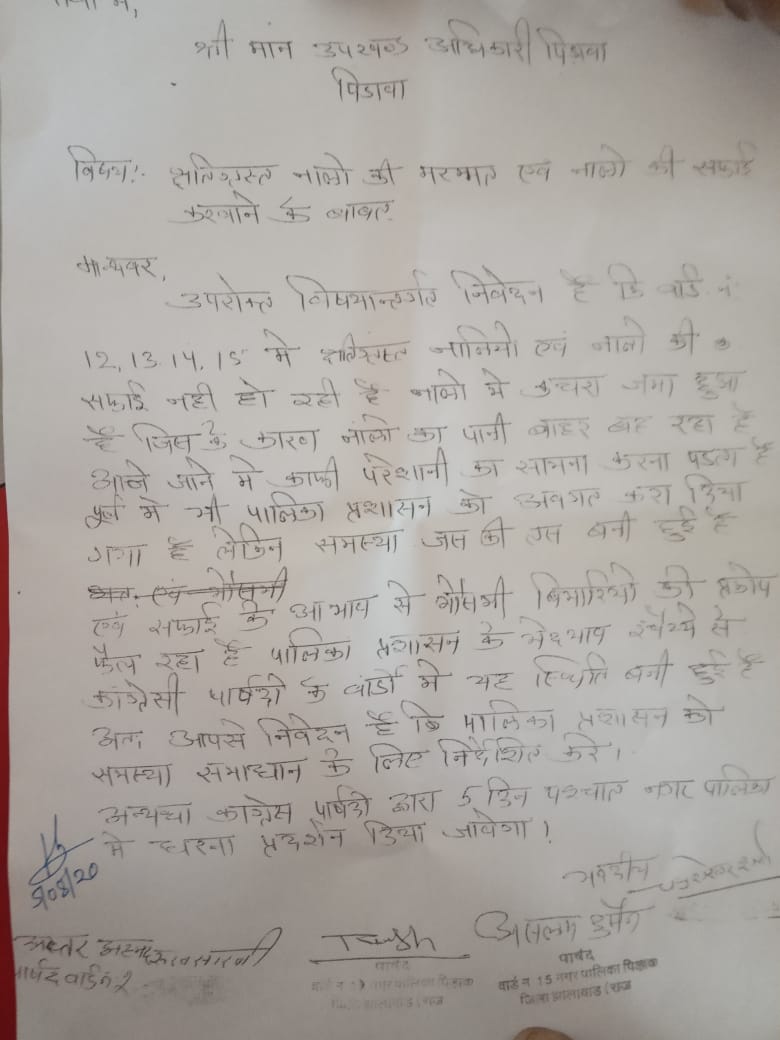 श्री मान उपखण्ड अधिकारी पिडावा
पिडावा
विषय:- क्षतिग्रस्त नालो की मरम्मत एवं नालो की सफाई
करवाने के बाबत
मान्यवर,
उपरोक्त विषयान्तर्गत निवेदन है कि वार्ड नं
12, 13, 14, 15 मे क्षतिग्रस्त नालियो एवं नालो की
सफाई नही हो रही है नालो मे कचरा जमा हुआ
है जिस के कारण नालो का पानी बाहर बह रहा है
आने जाने मे काफी परेशानी का सामना करना पडता है
पूर्व मे भी पालिका प्रशासन को अवगत करा दिया
गया है लेकिन समस्या जस की तस बनी हुई है
एवं सफाई के आभाव से मौसमी बिमारियो की प्रकोप
फैल रहा है पालिका प्रशासन के भेदभाव रवैय्ये से
कांग्रेसी पार्षदो के वार्डो मे यह स्थिति बनी हुई है
अतः आपसे निवेदन है कि पालिका प्रशासन को
समस्या समाधान के लिए निर्देशित करे।
अन्यथा कांग्रेस पार्षदो द्वारा 5 दिन पश्चात नगर पालिका
मे धरना प्रदर्शन किया जावेगा।
भवदीय
पार्षद वार्ड नं 2
पार्षद
नगर पालिका पिडावा
जिला झालावाड (राज
पार्षद
वार्ड न 15 नगर पालिका पिडावा
जिला झालावाड (राज